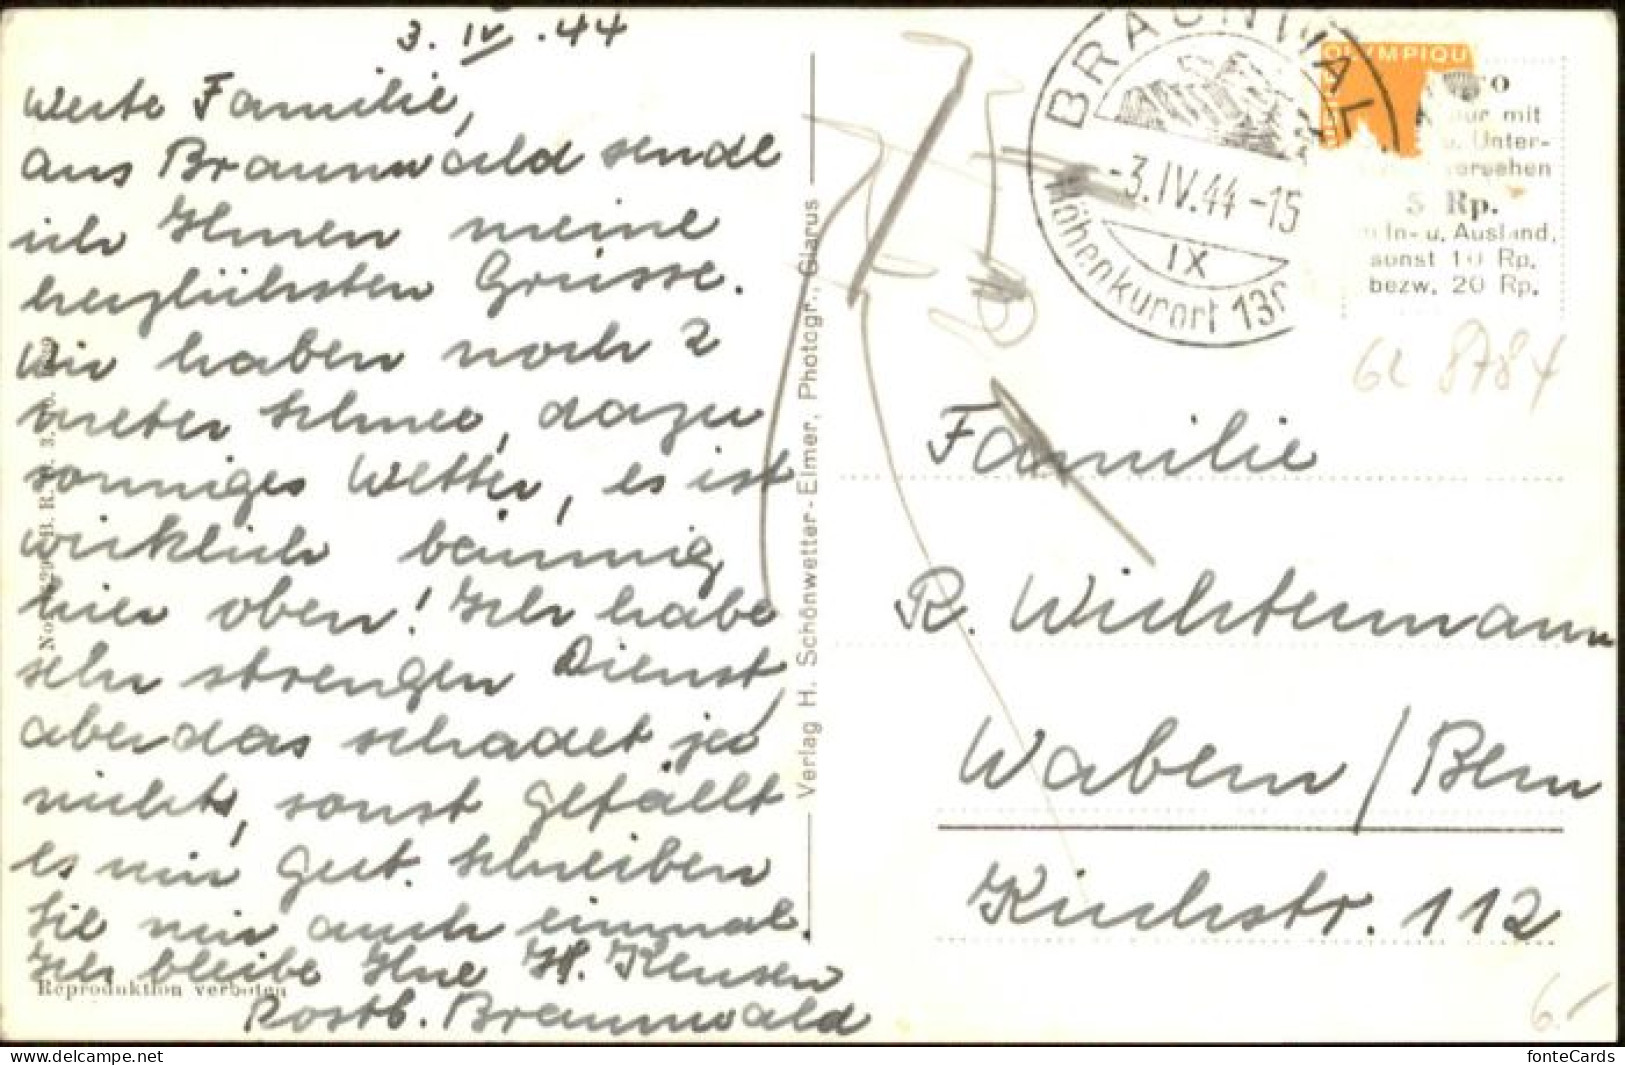 3. IV. 44
Werte Familie,
aus Braunwald sende
ich Ihnen meine
herzlichsten Grüsse.
Wir haben noch 2
meter Schnee, dazu
sonniges Wetter, es ist
wirklich bäumig
hier oben! Ich habe
sehr strengen Dienst,
aber das schadet ja
nichts, sonst gefällt
es mir gut. Schreiben
Sie mir auch einmal.
Ich bleibe Ihre
Postb. Braunwald
Reproduktion verboten
Verlag H. Schönwetter-Elmer, Photogr., Glarus
BRAUNWALD
-3.IV.44-15
IX
Höhenkurort
OLYMPIQU
nur mit
u. Unter-
versehen
5 Rp.
In- u. Ausland,
sonst 10 Rp.
bezw. 20 Rp.
GL 8784
Familie
R. Wichtermann
Wabern / Bern
Kirchstr. 112
6.-
https://www.delcampe.net
fonteCards